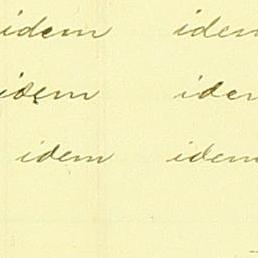 idem idem
idem idem
idem idem